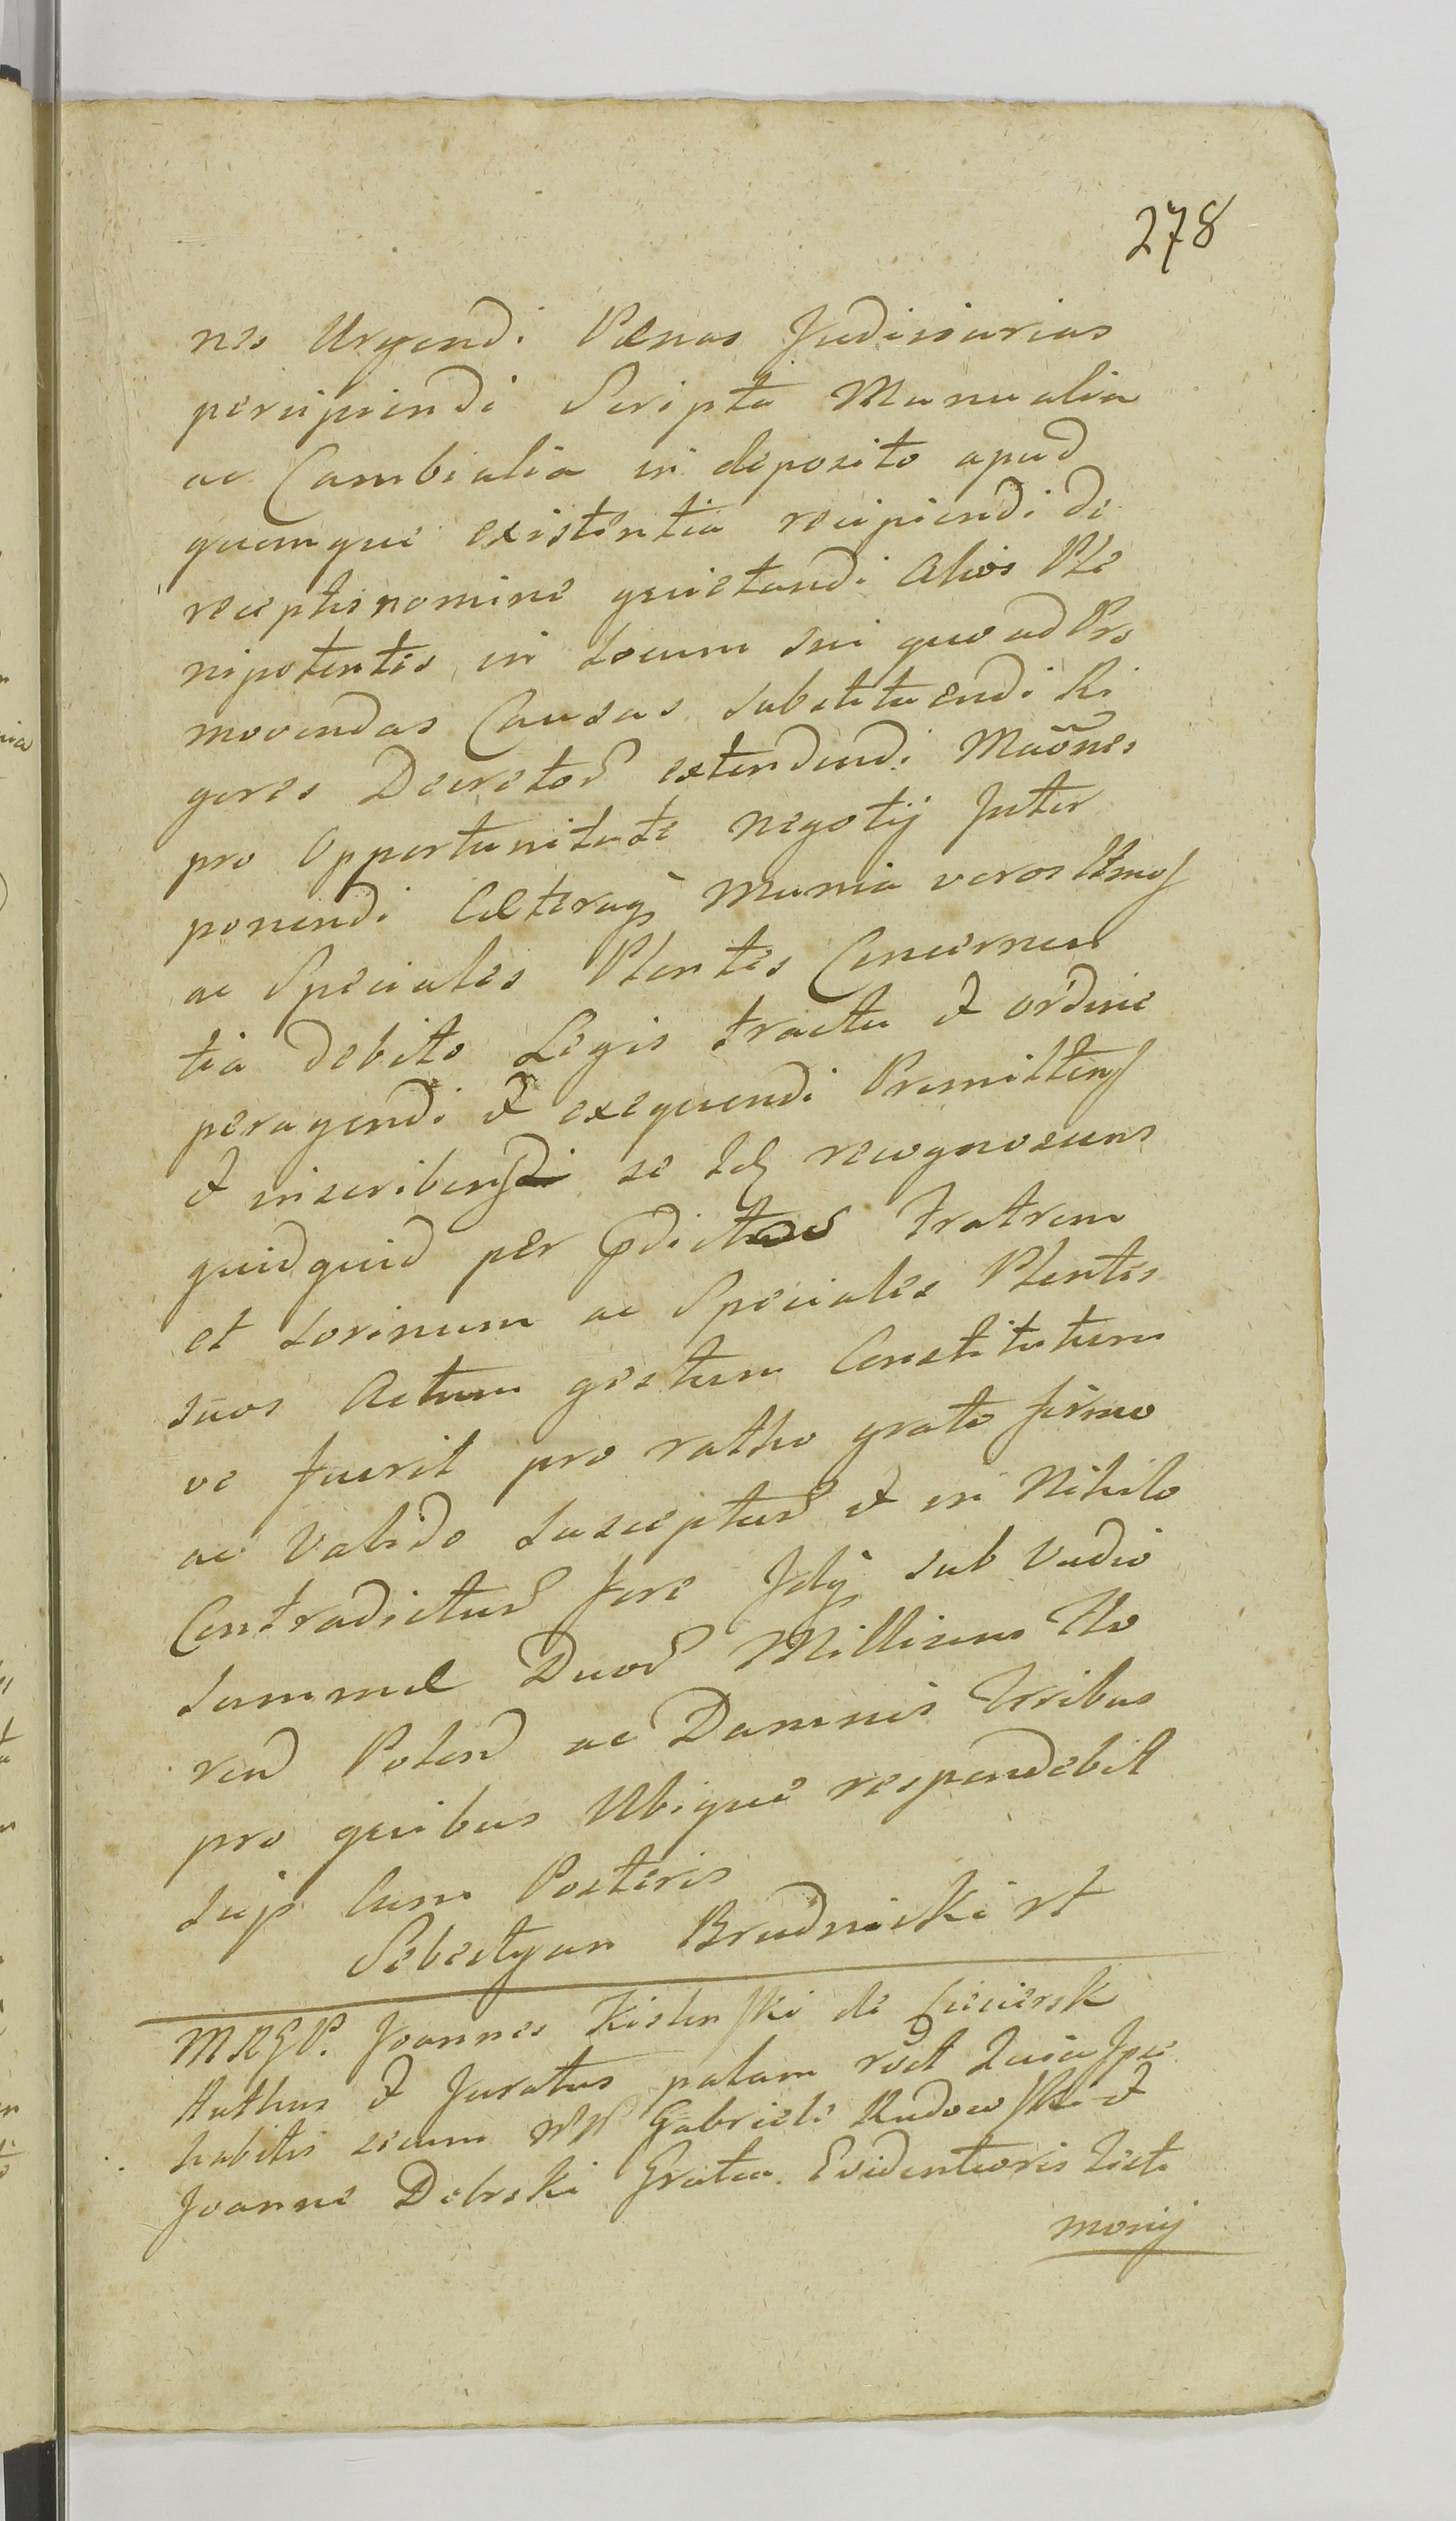 278
nes Urgendi Pænas Judiciarias
percipiendi Scripta Manualia
ac Cambialia in deposito apud
quemque existentia recipiendi de
receptis nomine quietandi Alios Ple
nipotentes in Locum sui quo ad Pro
movendas Causas substituendi Ri
gores Decretor extendendi Mãones
pro Opportunitate negotij Inter
ponendi Cæteraq Munia veros
ac Speciales Plentes Concernen
tia debito Legis tractu et ordine
peragendi et exequendi Premittens
et inscribens se recognoscens
quidquid per pdictos Fratrem
et Sorinum ac Speciales Plentes
suos Actum gestum Constitutum
ve fuerit pro ratho grato firmo
ac Valido Suscepturus et in Nihilo
Contradicturus fore sub Vadio
Summæ Duor Millium Flo
ren Polon ac Damnis Trribus
pro quibus Ubique respondebit
Suis Cum Posteris
Sebestyan Brudnicki
Joannes de
et Juratus palam Quia
habitis secum NN Gabriele Rudowski et
Joanne Debski Gratia Evidentioris Testi
monij